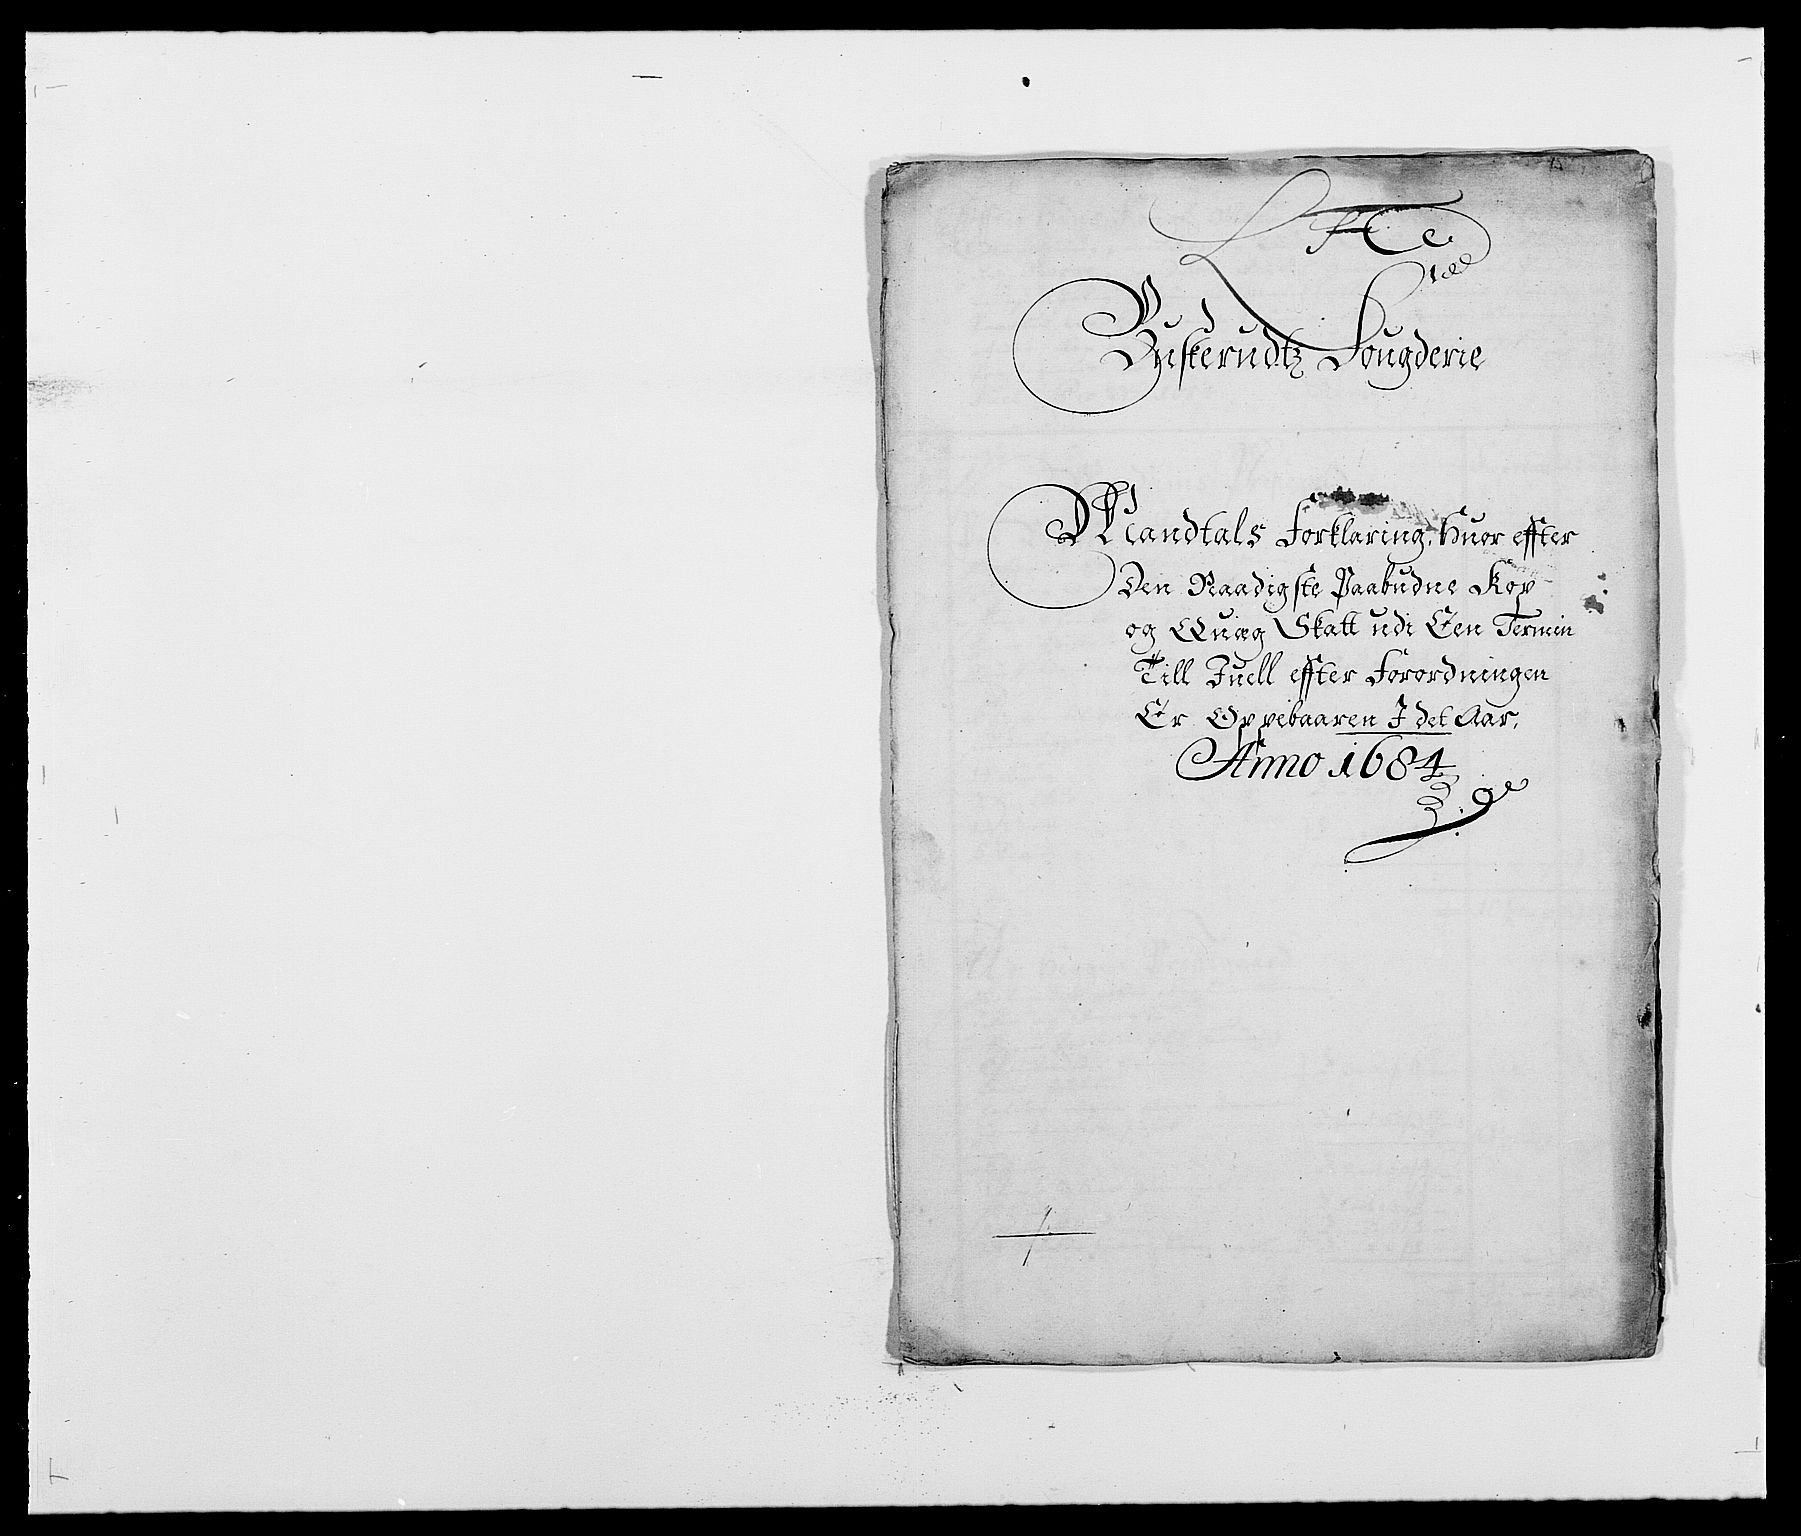 Buskerudtz Fougderie
Mandtals Forklaring, Huor effter
Den Naadigste Paabudne Kop
og Quæg Skatt udi Een Termin
Till Juell effter Forordningen
Er Oppebaaren I det Aar,
Anno 1684